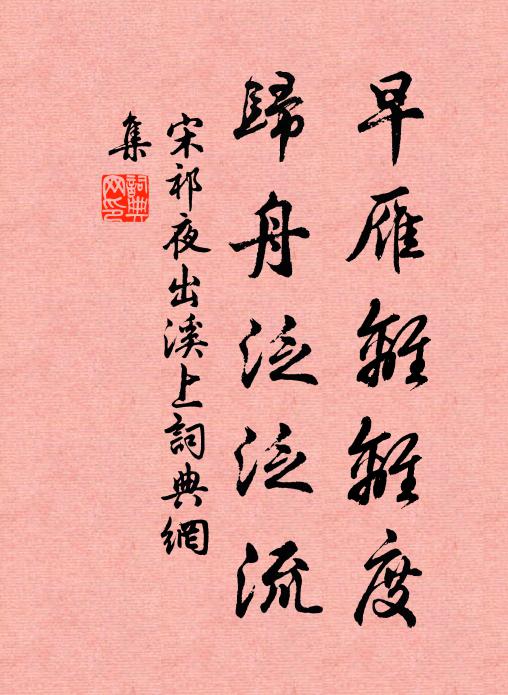 早雁離離度
歸舟泛泛流
宋祁夜出溪上詞典網
集
詞典
网印